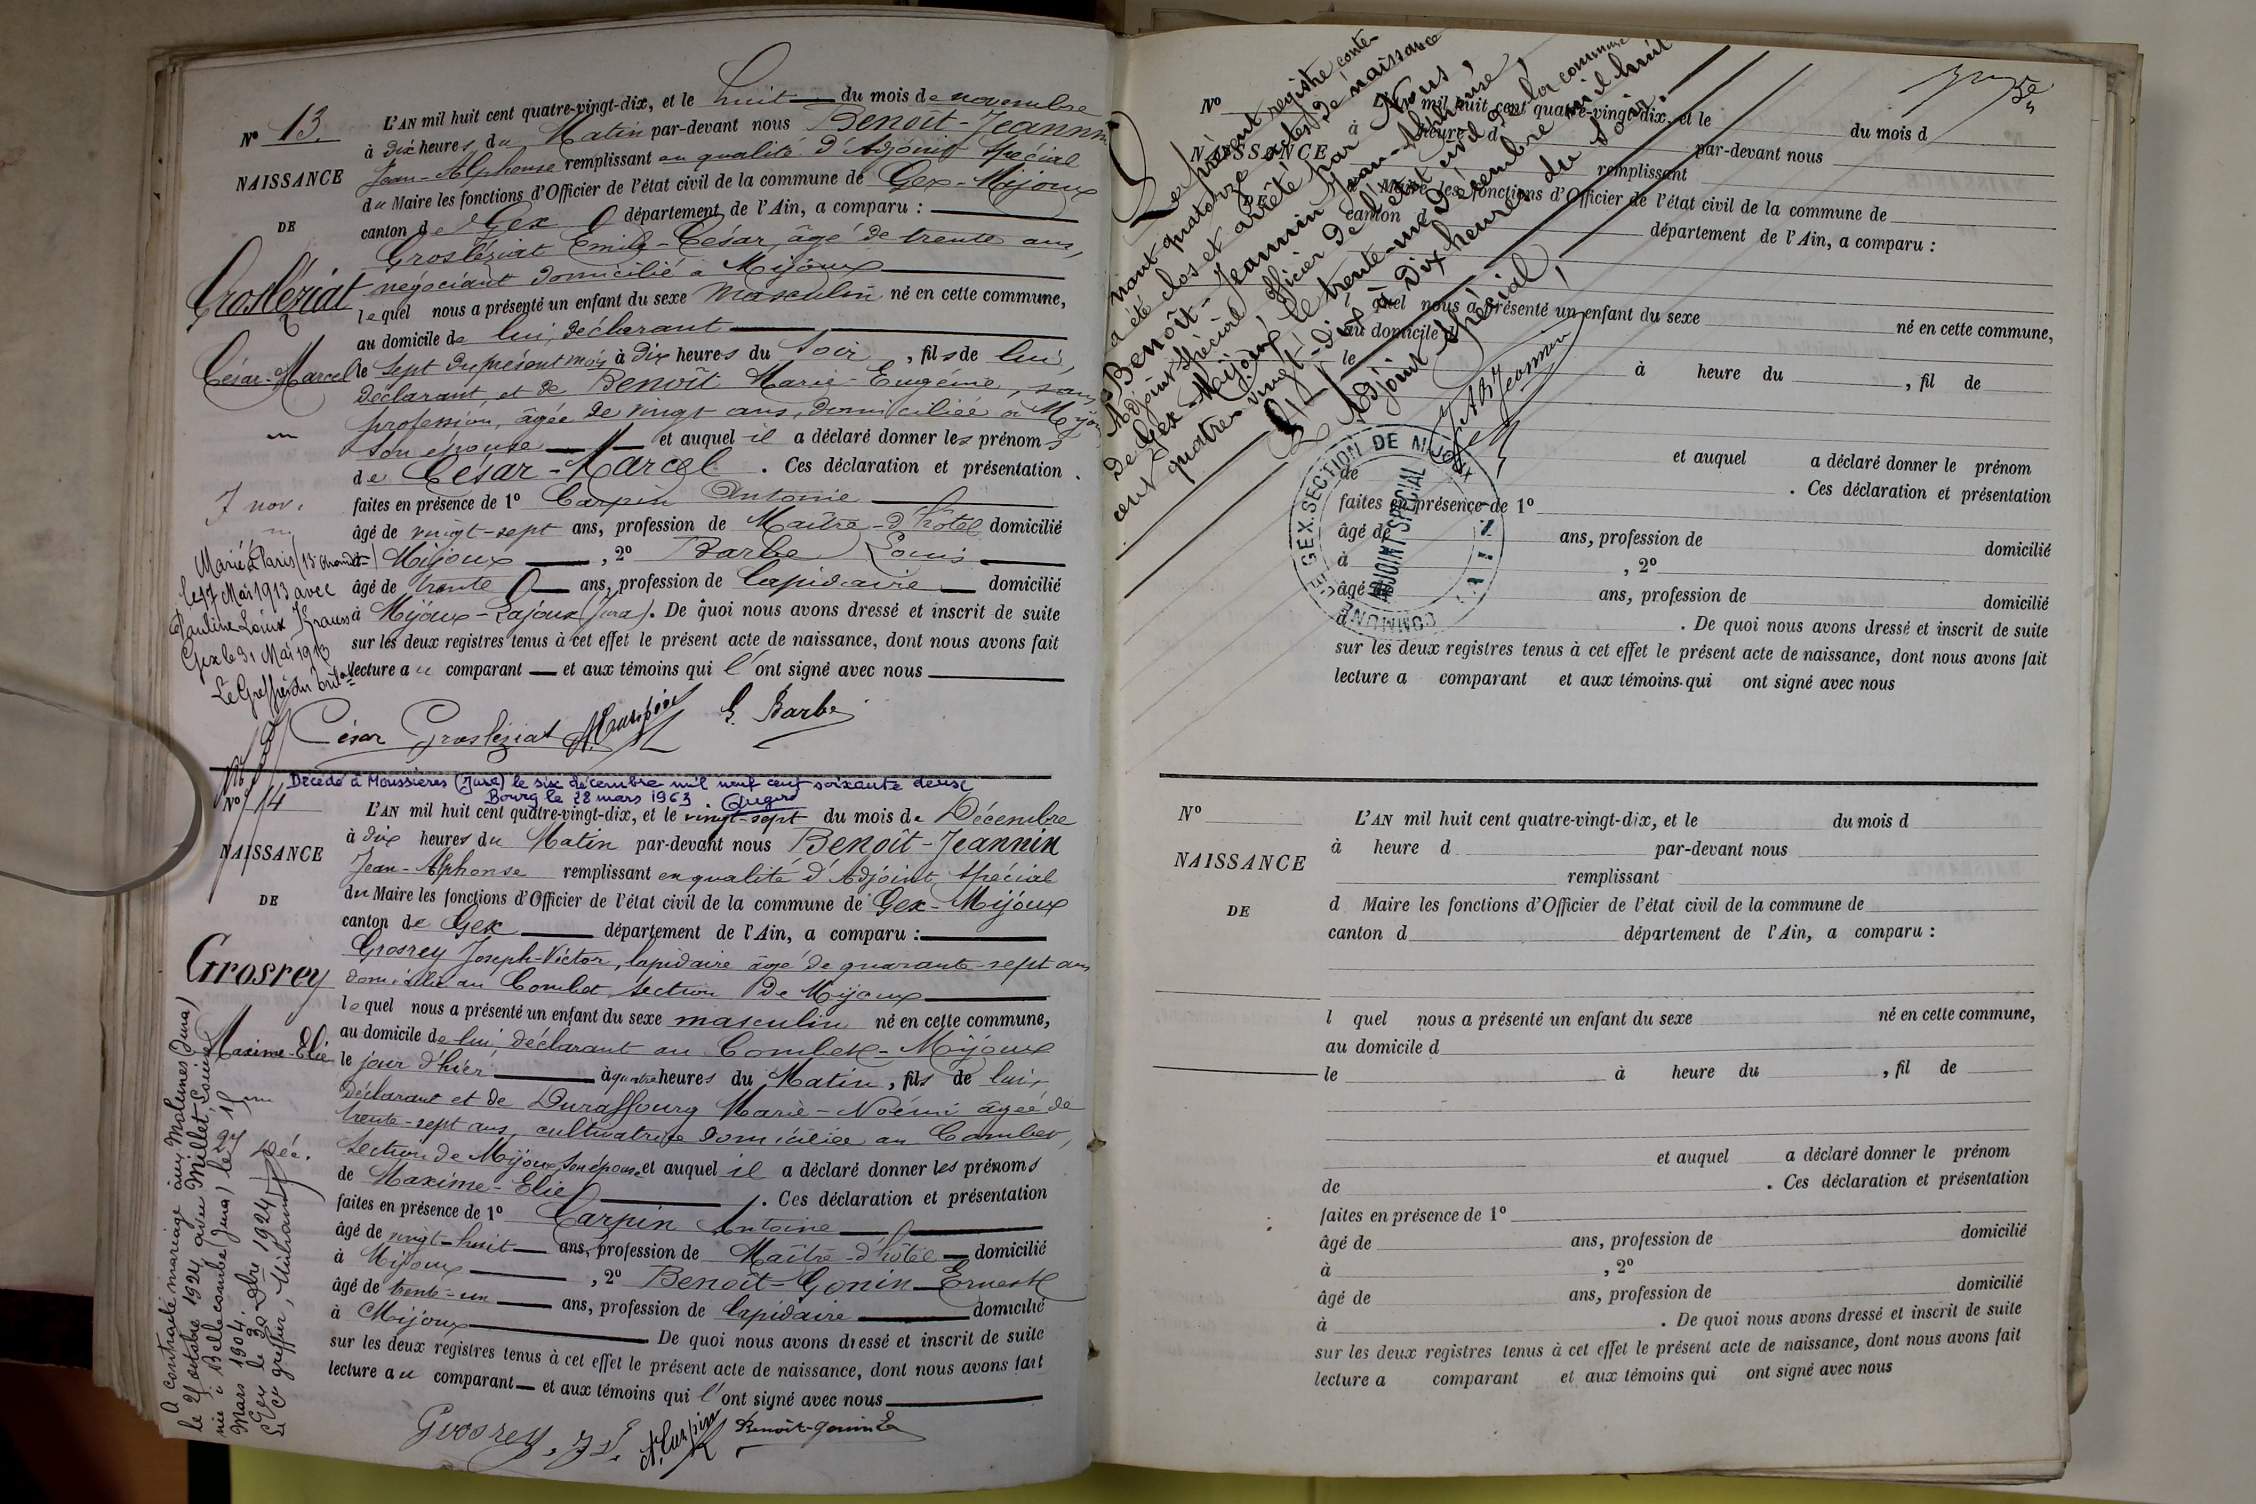 N° 13.
NAISSANCE
DE
Grosléziat
César-Marcel
7 nov.
Marié à Paris
le 17 Mai 1913 avec
Pauline Louise Krauss
Gex le 31 Mai 1913
L'AN mil huit cent quatre-vingt-dix, et le huit du mois de novembre
à dix heures du Matin par-devant nous Benoît-Jeannin
Jean-Alphonse remplissant en qualité d'Adjoint Spécial
du Maire les fonctions d'Officier de l'état civil de la commune de Gex-Mijoux
canton de Gex département de l'Ain, a comparu :
Grosléziat Emile-César, âgé de trente ans,
négociant domicilié à Mijoux
lequel nous a présenté un enfant du sexe masculin né en cette commune,
au domicile de lui, déclarant
le sept du présent mois à dix heures du Soir, fils de lui,
déclarant, et de Benoît Marie-Eugénie, sans
profession, âgée de vingt ans, domiciliée à Mijoux
son épouse et auquel il a déclaré donner les prénoms
de César-Marcel. Ces déclaration et présentation
faites en présence de 1° Carpin Antoine
âgé de vingt-sept ans, profession de Maître-d'hôtel domicilié
à Mijoux, 2° Barbe Louis
âgé de trente ans, profession de lapidaire domicilié
à Mijoux-Lajoux (Jura). De quoi nous avons dressé et inscrit de suite
sur les deux registres tenus à cet effet le présent acte de naissance, dont nous avons fait
lecture au comparant et aux témoins qui l'ont signé avec nous
César Grosléziat A. Carpin L. Barbe
Décédé à Moussières (Jura) le six décembre mil neuf cent soixante deux
Bourg le 28 mars 1963.
N° 14
NAISSANCE
DE
Grosrey
Maxime-Elie
27 Déc.
A contracté mariage aux Molunes (Jura)
le 27 octobre 1924 avec Millet, Louise
née à Bellecombe (Jura) le 15
Mars 1904.
Gex le 30 1924
Le greffier,
L'AN mil huit cent quatre-vingt-dix, et le vingt-sept du mois de Décembre
à dix heures du Matin par-devant nous Benoît-Jeannin
Jean-Alphonse remplissant en qualité d'Adjoint Spécial
du Maire les fonctions d'Officier de l'état civil de la commune de Gex-Mijoux
canton de Gex département de l'Ain, a comparu :
Grosrey Joseph-Victor, lapidaire âgé de quarante-sept ans
domicilié au Combet, section De Mijoux
lequel nous a présenté un enfant du sexe masculin né en cette commune,
au domicile de lui, déclarant au Combet-Mijoux
le jour d'hier à quatre heures du Matin, fils de lui,
déclarant et de Duraffourg Marie-Noémi âgée de
trente-sept ans, cultivatrice domiciliée au Combet,
section de Mijoux, son épouse et auquel il a déclaré donner les prénoms
de Maxime-Elie. Ces déclaration et présentation
faites en présence de 1° Carpin Antoine
âgé de vingt-huit ans, profession de Maître-d'hôtel domicilié
à Mijoux, 2° Benoît-Gonin Ernest
âgé de trente-un ans, profession de lapidaire domicilié
à Mijoux De quoi nous avons dressé et inscrit de suite
sur les deux registres tenus à cet effet le présent acte de naissance, dont nous avons fait
lecture au comparant et aux témoins qui l'ont signé avec nous
Grosrey. J V. A. Carpin Benoît-Gonin E
Le présent registre conte-
nant quatorze actes de naissance
a été clos et arrêté par Nous,
Benoît-Jeannin Jean-Alphonse,
Adjoint Spécial Officier de l'état civil de la commune
de Gex-Mijoux, le trente-un Décembre mil huit
cent quatre-vingt-dix à Dix heures du Soir.
L'Adjoint Spécial,
COMMUNE DE GEX. SECTION DE MIJOUX
ADJOINT SPECIAL
N°
NAISSANCE
DE
L'AN mil huit cent quatre-vingt-dix, et le du mois d
à heure d par-devant nous
remplissant
d Maire les fonctions d'Officier de l'état civil de la commune de
canton d département de l'Ain, a comparu :
l quel nous a présenté un enfant du sexe né en cette commune,
au domicile d
le à heure du , fil de
et auquel a déclaré donner le prénom
de . Ces déclaration et présentation
faites en présence de 1°
âgé de ans, profession de domicilié
à , 2°
âgé de ans, profession de domicilié
à . De quoi nous avons dressé et inscrit de suite
sur les deux registres tenus à cet effet le présent acte de naissance, dont nous avons fait
lecture a comparant et aux témoins qui ont signé avec nous
N°
NAISSANCE
DE
L'AN mil huit cent quatre-vingt-dix, et le du mois d
à heure d par-devant nous
remplissant
d Maire les fonctions d'Officier de l'état civil de la commune de
canton d département de l'Ain, a comparu :
l quel nous a présenté un enfant du sexe né en cette commune,
au domicile d
le à heure du , fil de
et auquel a déclaré donner le prénom
de . Ces déclaration et présentation
faites en présence de 1°
âgé de ans, profession de domicilié
à , 2°
âgé de ans, profession de domicilié
à . De quoi nous avons dressé et inscrit de suite
sur les deux registres tenus à cet effet le présent acte de naissance, dont nous avons fait
lecture a comparant et aux témoins qui ont signé avec nous